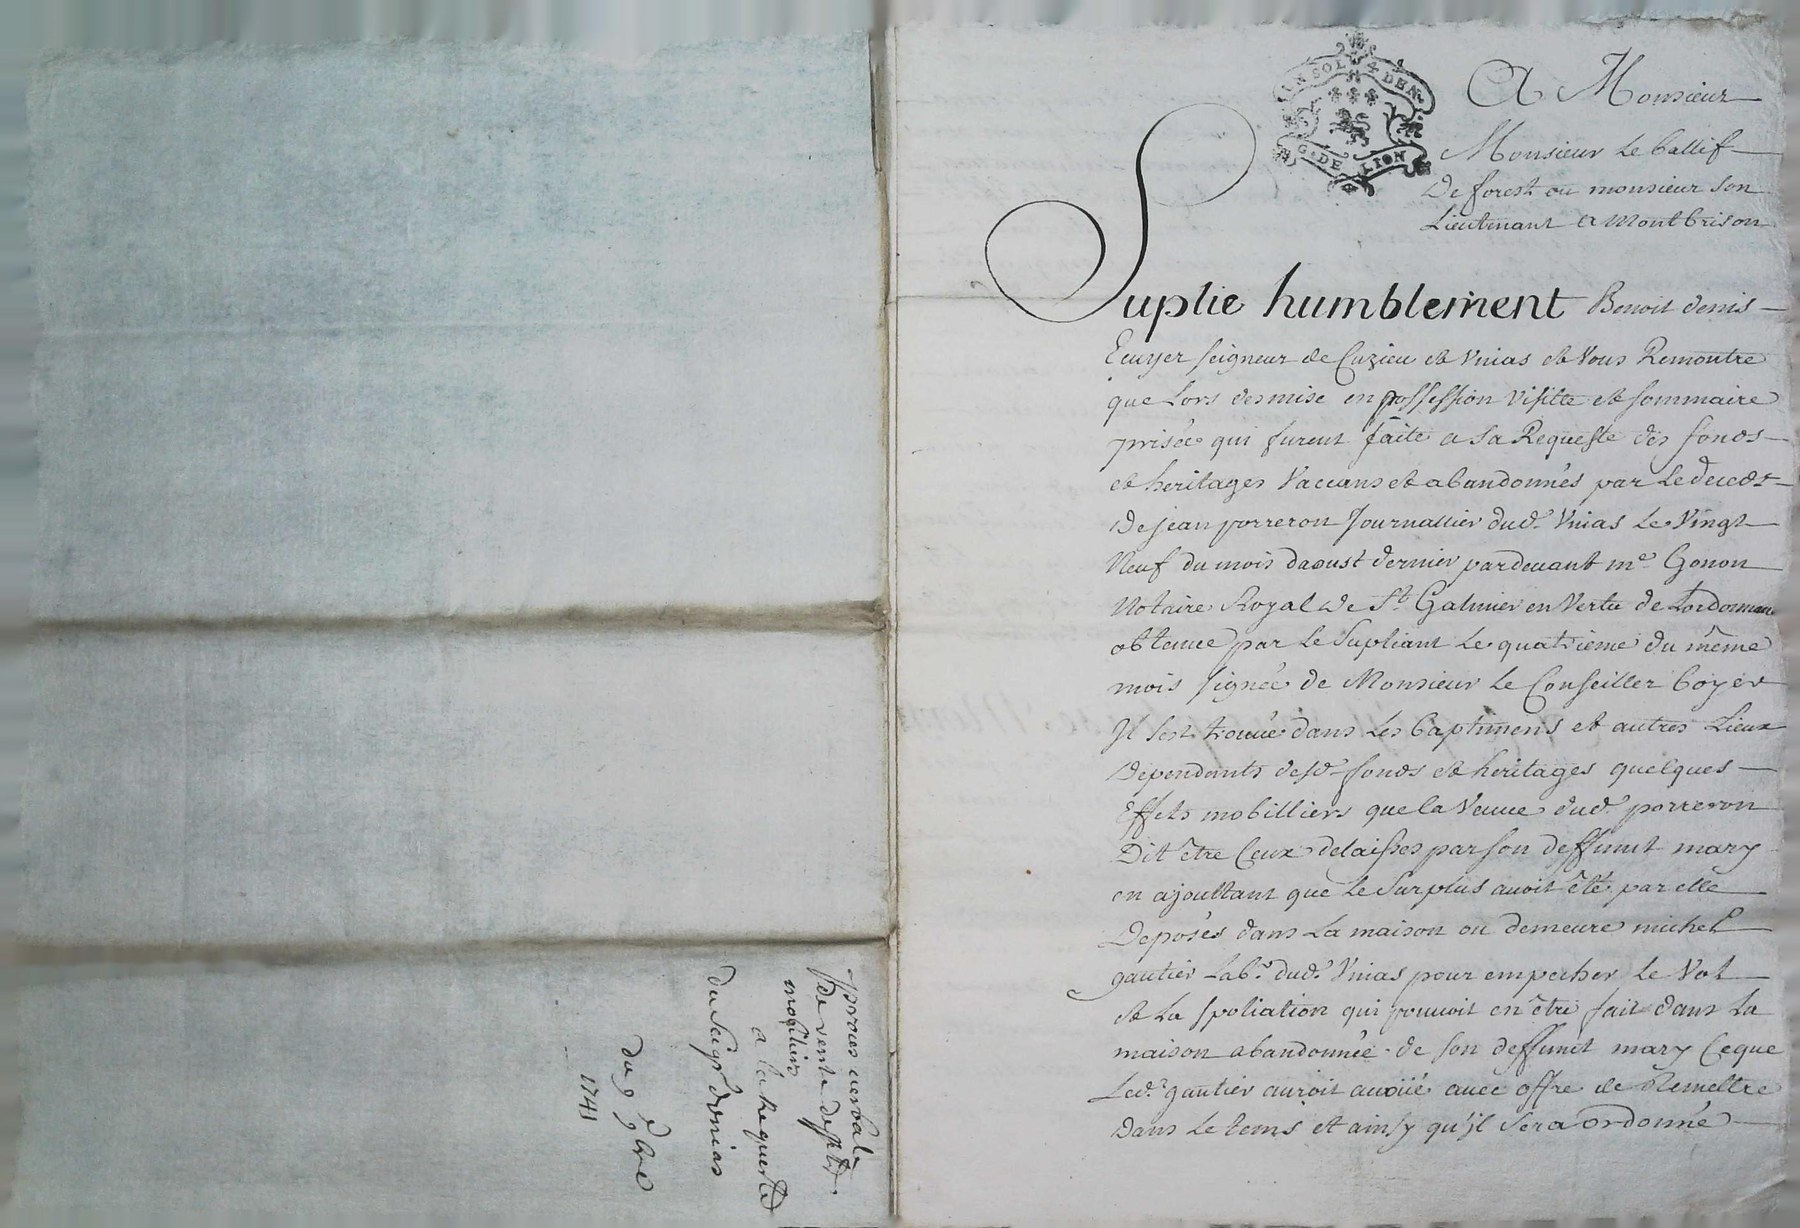 procès verbale
de vente deffets
mobiliers
a la requeste
du Seigr dvnias
du 9 9bre
1741
UN SOL 4 DEN.
G. DE LION
A Monsieur
Monsieur Le Ballif
De forest ou monsieur Son
Lieutenant a Montbrison
Suplie humblement Benoit denis
Ecuyer seigneur de Cuzieu et Vnias et Vous Remontre
que Lors des mise en possession Visitte et sommaire
prisée qui furent faite a Sa Requeste des fonds
et heritages Vaccans et abandonnés par Le deceds
De jean porreron Journallier dud. Vnias Le Vingt
Neuf du mois daoust dernier pardevant me. Gonon
Notaire Royal De St. Galmier en Vertu de Lordonnance
obtenue par Le Supliant Le quatrieme du même
mois signée de Monsieur Le Conseiller Boyer
Jl sest trouvé dans Les baptimens et autres Lieux
Dependants desd. fonds et heritages quelques
Effets mobilliers que la Veuve dud. porreron
Dit être Ceux delaisses par son deffunt mary
en ajouttant que Le Surplus avoit êté par elle
Deposés dans La maison ou demeure michel
gautier Labr. dud. Vnias pour empecher Le Vol
et La spoliation qui pouvoit en être fait dans La
maison abandonnée de son deffunt mary Ceque
Led. gautier auroit avoüé avec offre de Remettre
Dans Le tems et ainsy qu'jl Sera ordonné